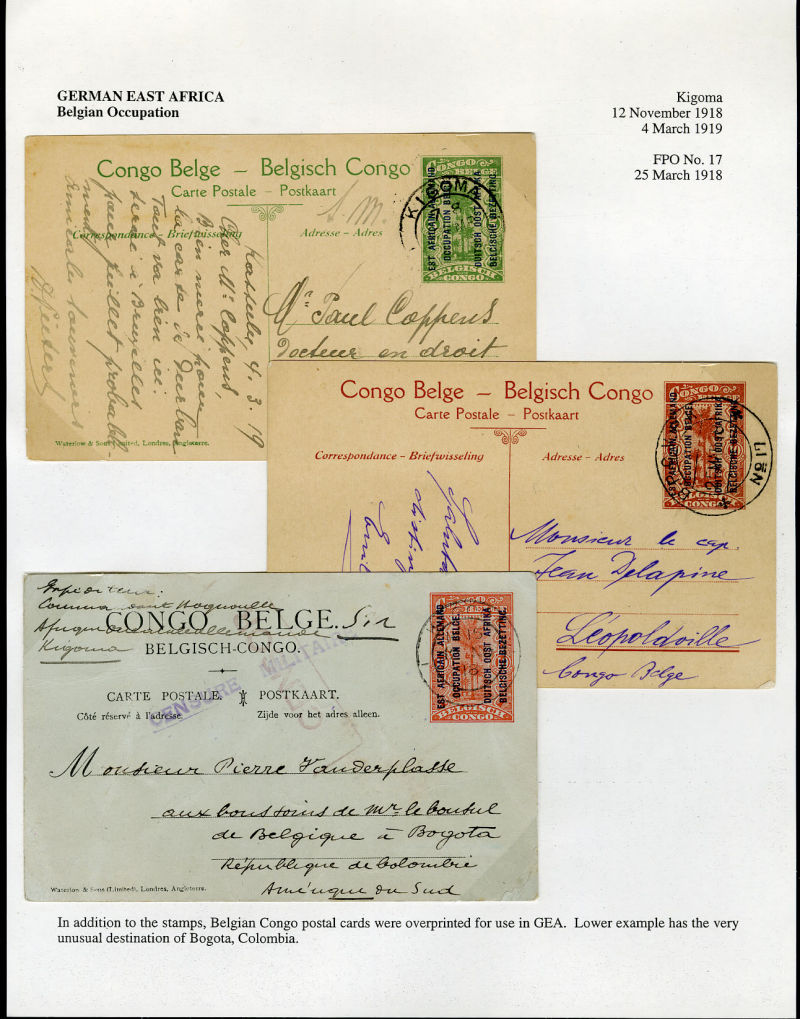 GERMAN EAST AFRICA
Belgian Occupation
Kigoma
12 November 1918
4 March 1919
FPO No. 17
25 March 1918
Congo Belge – Belgisch Congo
Carte Postale - Postkaart
Correspondance - Briefwisseling
Adresse - Adres
CONGO BELGE
EST AFRICAIN ALLEMAND
OCCUPATION BELGE
DUITSCH OOST AFRIKA
BELGISCHE BEZETTING
BELGISCH CONGO
KIGOMA
S. M.
4. 3. 19
Cher Mr. Coppens,
Bien merci pour
la carte de Durban
Tout va bien ici
serai à Bruxelles
pour juillet probabl-
ment
Mr. Paul Coppens
Docteur en droit
Waterlow & Sons Limited, Londres, Angleterre.
Congo Belge – Belgisch Congo
Carte Postale - Postkaart
Correspondance - Briefwisseling
Adresse - Adres
CONGO BELGE
EST AFRICAIN ALLEMAND
OCCUPATION BELGE
DUITSCH OOST AFRIKA
BELGISCHE BEZETTING
BELGISCH CONGO
Monsieur le cap.
Jean Delapine
Léopoldville
Congo Belge
Expéditeur:
Afrique orientale allemande
Kigoma
CONGO BELGE.
BELGISCH-CONGO.
CARTE POSTALE. POSTKAART.
Côté réservé à l'adresse. Zijde voor het adres alleen.
CENSURE MILITAIRE
EST AFRICAIN ALLEMAND
OCCUPATION BELGE
DUITSCH OOST AFRIKA
BELGISCHE BEZETTING
BELGISCH CONGO
Monsieur Pierre Vanderplasse
aux bons soins de Mr. le Consul
de Belgique à Bogota
République de Colombie
Amérique du Sud
Waterlow & Sons (Limited), Londres, Angleterre.
In addition to the stamps, Belgian Congo postal cards were overprinted for use in GEA. Lower example has the very
unusual destination of Bogota, Colombia.